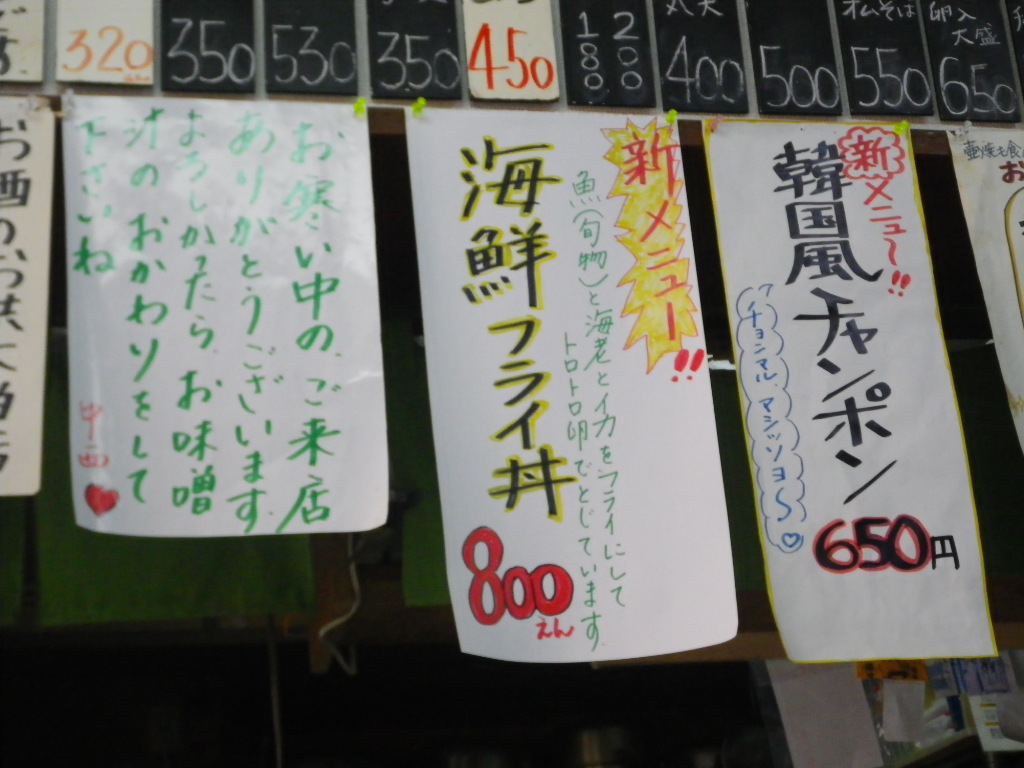 320
350
530
350
450
200
180
400
500
オムそば
550
卵入
大盛
650
お寒い中の、ご来店
ありがとうございます。
よろしかったら、お味噌
汁の おかわりをして
下さいね
中西
新メニュー!!
魚(旬物)と海老とイカをフライにして
トロトロ卵でとじています。
海鮮フライ丼
800
えん
新メニュー!!
韓国風チャンポン
650円
チョンマル、マシッソヨ〜♡